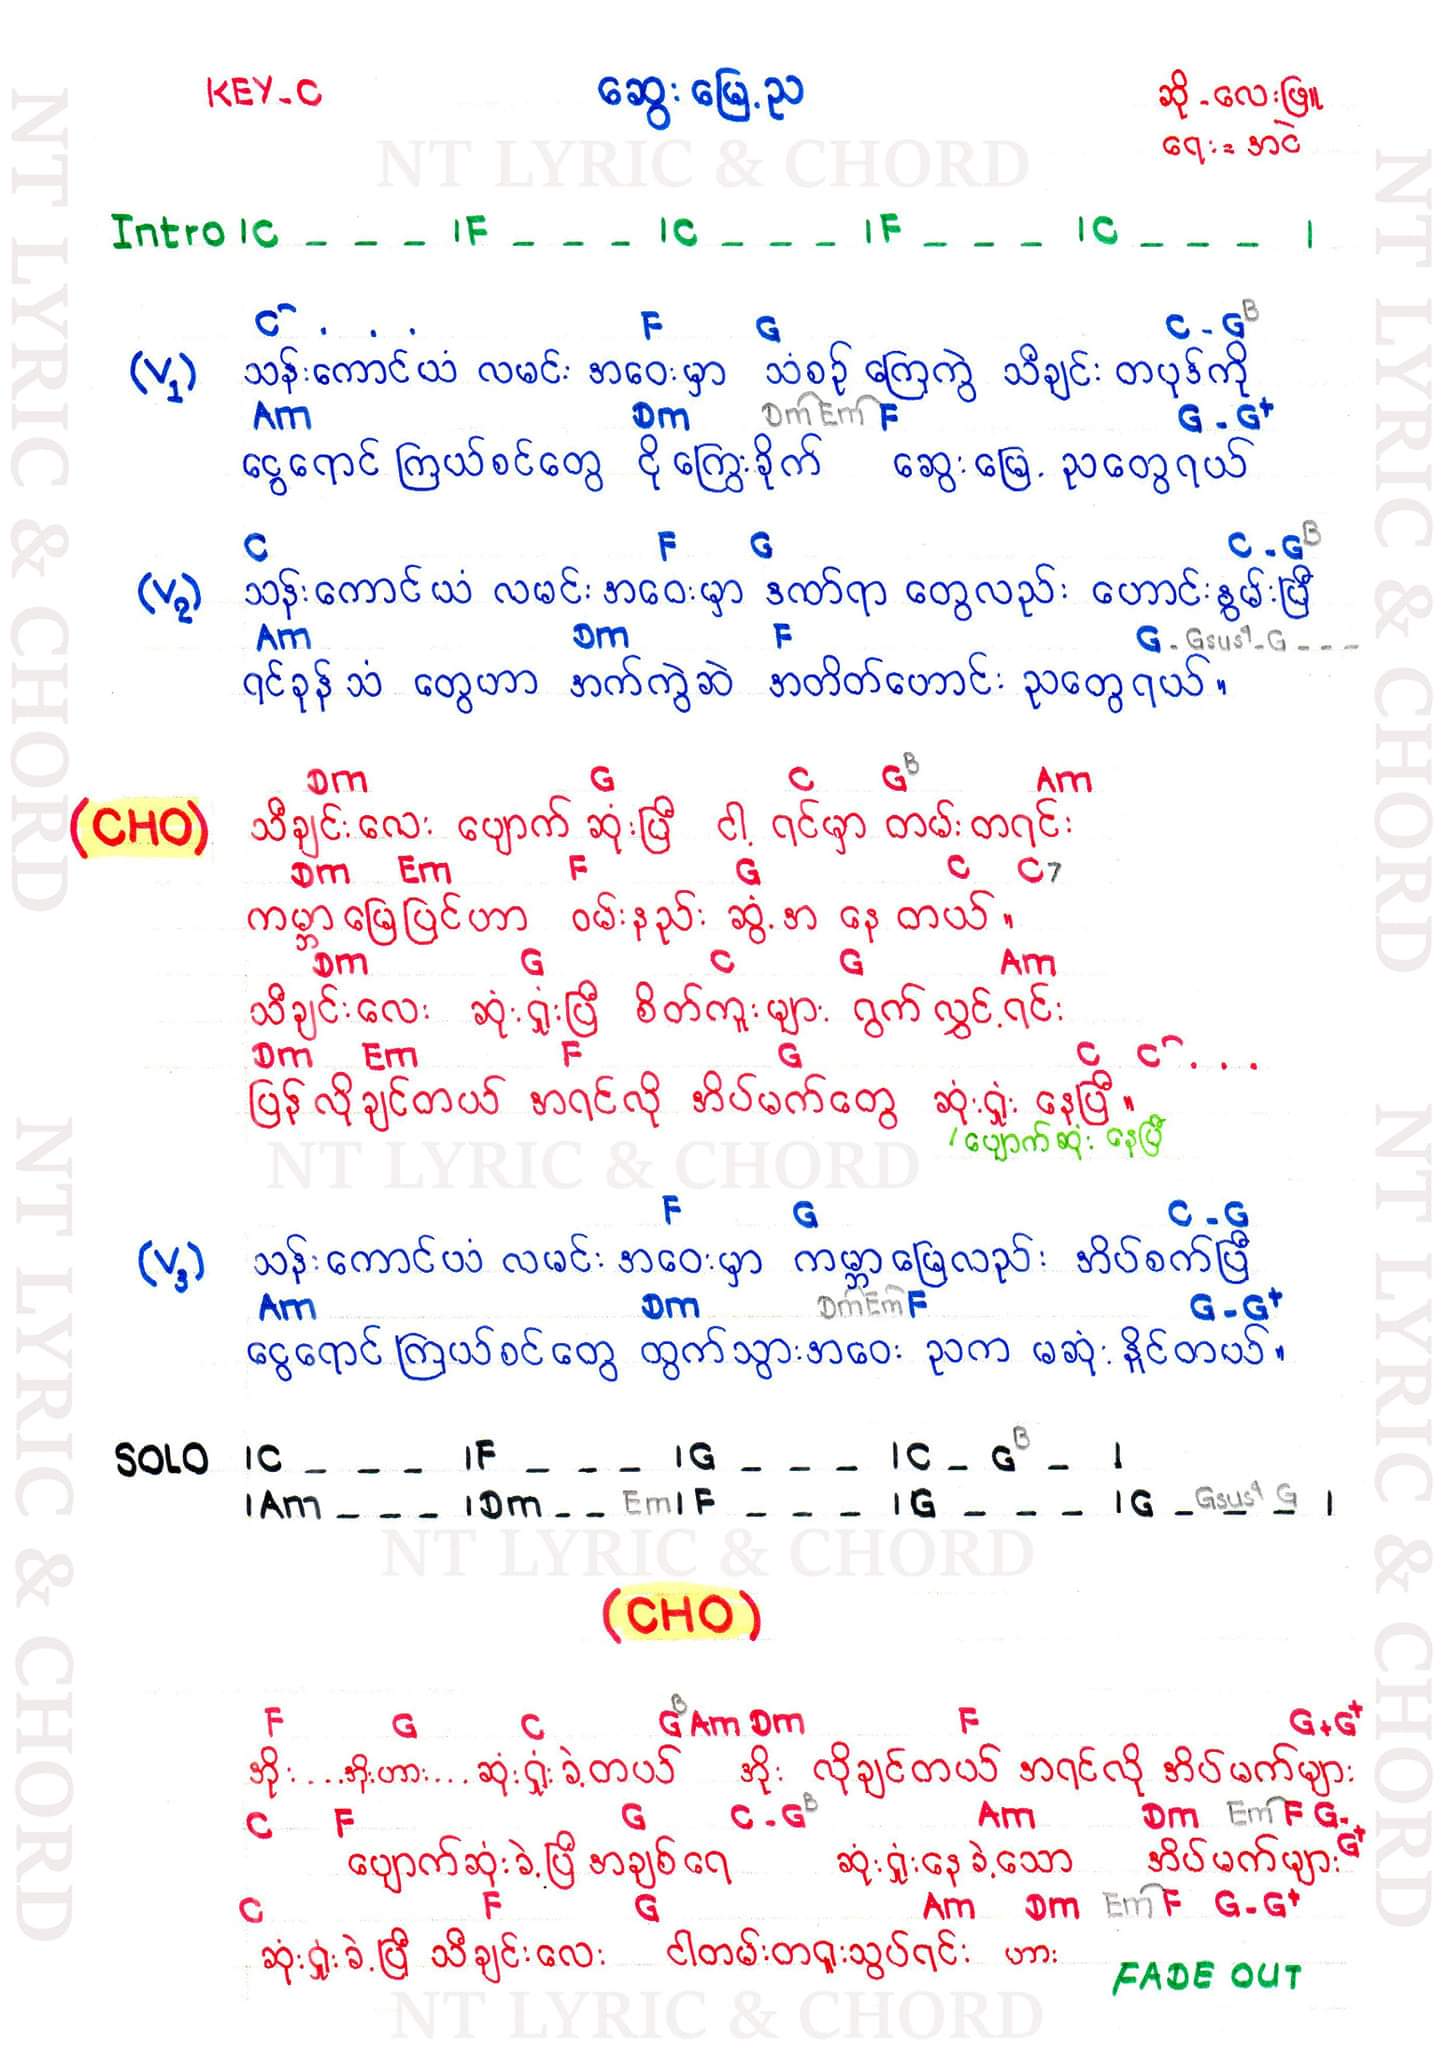 KEY-C ဆွေးမြေ့ည ဆို-လေးဖြူ
ရေး=အငဲ
NT LYRIC & CHORD
Intro |C _ _ _ |F _ _ _ |C _ _ _ |F _ _ _ |C _ _ _ |
C . . . F G C - G B
(V1) သန်းကောင်ယံ လမင်း အဝေးမှာ သံစဉ် ကြေကွဲ သီချင်း တပုဒ်ကို
Am Dm Dm Em F G - G+
ငွေရောင် ကြယ်စင်တွေ ငို ကြွေးခိုက် ဆွေးမြေ့ ညတွေရယ်
C F G C - G B
(V2) သန်းကောင်ယံ လမင်း အဝေးမှာ ဒဏ်ရာ တွေလည်း ဟောင်းနွမ်းပြီ
Am Dm F G - Gsus4 - G - - -
ရင်ခုန်သံ တွေဟာ အက်ကွဲဆဲ အတိတ်ဟောင်း ညတွေရယ်။
Dm G C G B Am
(CHO) သီချင်းလေး ပျောက်ဆုံးပြီ ငါ့ ရင်မှာ တမ်းတရင်း
Dm Em F G C C7
ကမ္ဘာမြေပြင်ဟာ ဝမ်းနည်း ဆွံ့အ နေ တယ်။
Dm G C G Am
သီချင်းလေး ဆုံးရှုံးပြီ စိတ်ကူးများ ရွက်လွှင့်ရင်း
Dm Em F G C C . . .
ပြန်လိုချင်တယ် အရင်လို အိပ်မက်တွေ ဆုံးရှုံး နေပြီ။
/ပျောက်ဆုံး နေပြီ
NT LYRIC & CHORD
F G C - G
(V3) သန်းကောင်ယံ လမင်း အဝေးမှာ ကမ္ဘာမြေလည်း အိပ်စက်ပြီ
Am Dm Dm Em F G - G+
ငွေရောင်ကြယ်စင်တွေ ထွက်သွားအဝေး ညက မဆုံးနိုင်တယ်။
SOLO |C _ _ _ |F _ _ _ |G _ _ _ |C _ G B _ |
|Am _ _ _ |Dm _ _ Em |F _ _ _ |G _ _ _ |G _ Gsus4 _ G _ |
NT LYRIC & CHORD
(CHO)
F G C G B Am Dm F G + G+
အိုး....အိုးဟား.... ဆုံးရှုံးခဲ့တယ် အိုး လိုချင်တယ် အရင်လို အိပ်မက်များ
C F G C - G B Am Dm Em F G -
ပျောက်ဆုံးခဲ့ပြီ အချစ်ရေ ဆုံးရှုံးနေခဲ့သော အိပ်မက်များ G+
C F G Am Dm Em F G - G+
ဆုံးရှုံးခဲ့ပြီ သီချင်းလေး ငါတမ်းတရူးသွပ်ရင်း ဟား
FADE OUT
NT LYRIC & CHORD
NT LYRIC & CHORD
NT LYRIC & CHORD
NT LYRIC & CHORD
NT LYRIC & CHORD